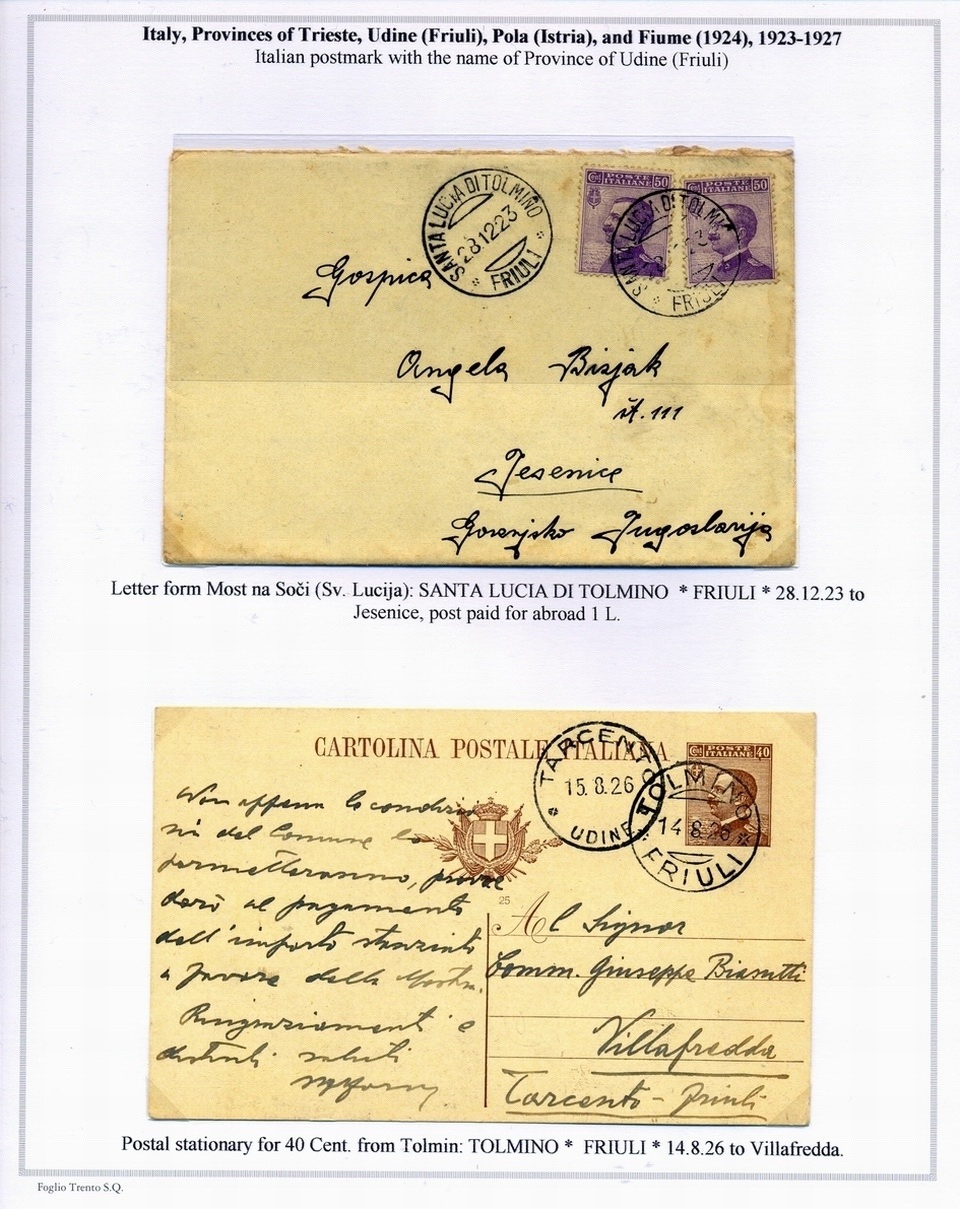 Italy, Provinces of Trieste, Udine (Friuli), Pola (Istria), and Fiume (1924), 1923-1927
Italian postmark with the name of Province of Udine (Friuli)
SANTA LUCIA DI TOLMINO
28.12.23
* FRIULI *
POSTE ITALIANE 50
POSTE ITALIANE 50
SANTA LUCIA DI TOLMI
* FRIULI
Gospica
Angela Bizjak
št. 111
Jesenice
Gorenjsko Jugoslavija
Letter form Most na Soči (Sv. Lucija): SANTA LUCIA DI TOLMINO * FRIULI * 28.12.23 to
Jesenice, post paid for abroad 1 L.
CARTOLINA POSTALE ITALIANA
POSTE ITALIANE 40
* TARCENTO
15.8.26
UDINE
TOLMINO
14 8 26
* FRIULI *
Non appena le condizio
ni del Comune lo
permetteranno, provve
derò al pagamento
dell'importo stanziato
a favore della Mostra.
Ringraziamenti e
distinti saluti
25
Al Signor
Comm. Giuseppe Biasutti
Villafredda
Tarcento - Friuli
Postal stationary for 40 Cent. from Tolmin: TOLMINO * FRIULI * 14.8.26 to Villafredda.
Foglio Trento S.Q.